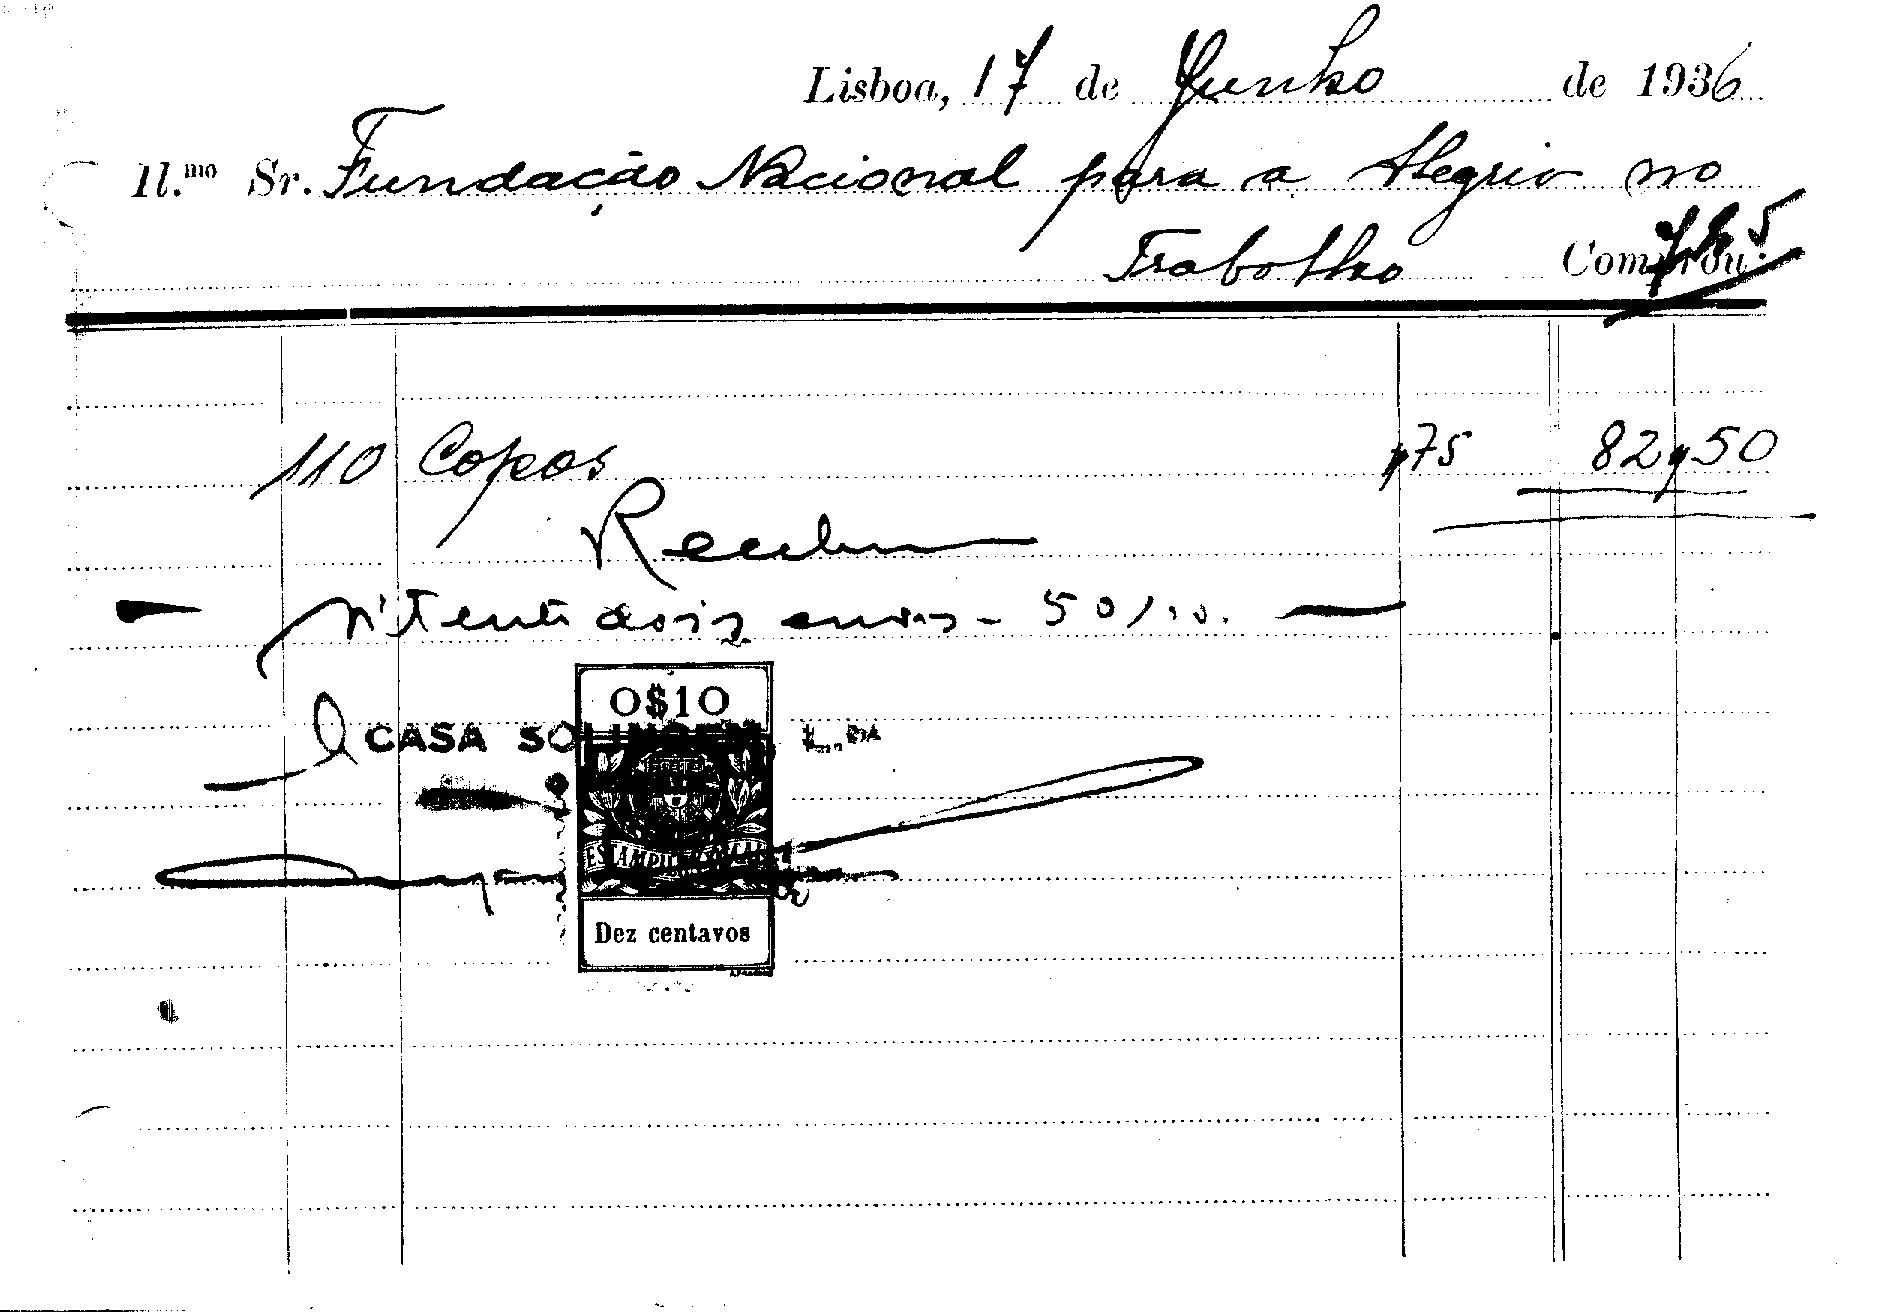 Lisboa, 17 de Junho de 1936
Il.mo Sr. Fundação Nacional para a Alegria no
Trabalho Comprou:
110 Copos $75 82$50
50
0$10
CASA SOLINGEN, L.DA
ESTAMPILHA FISCAL
Dez centavos